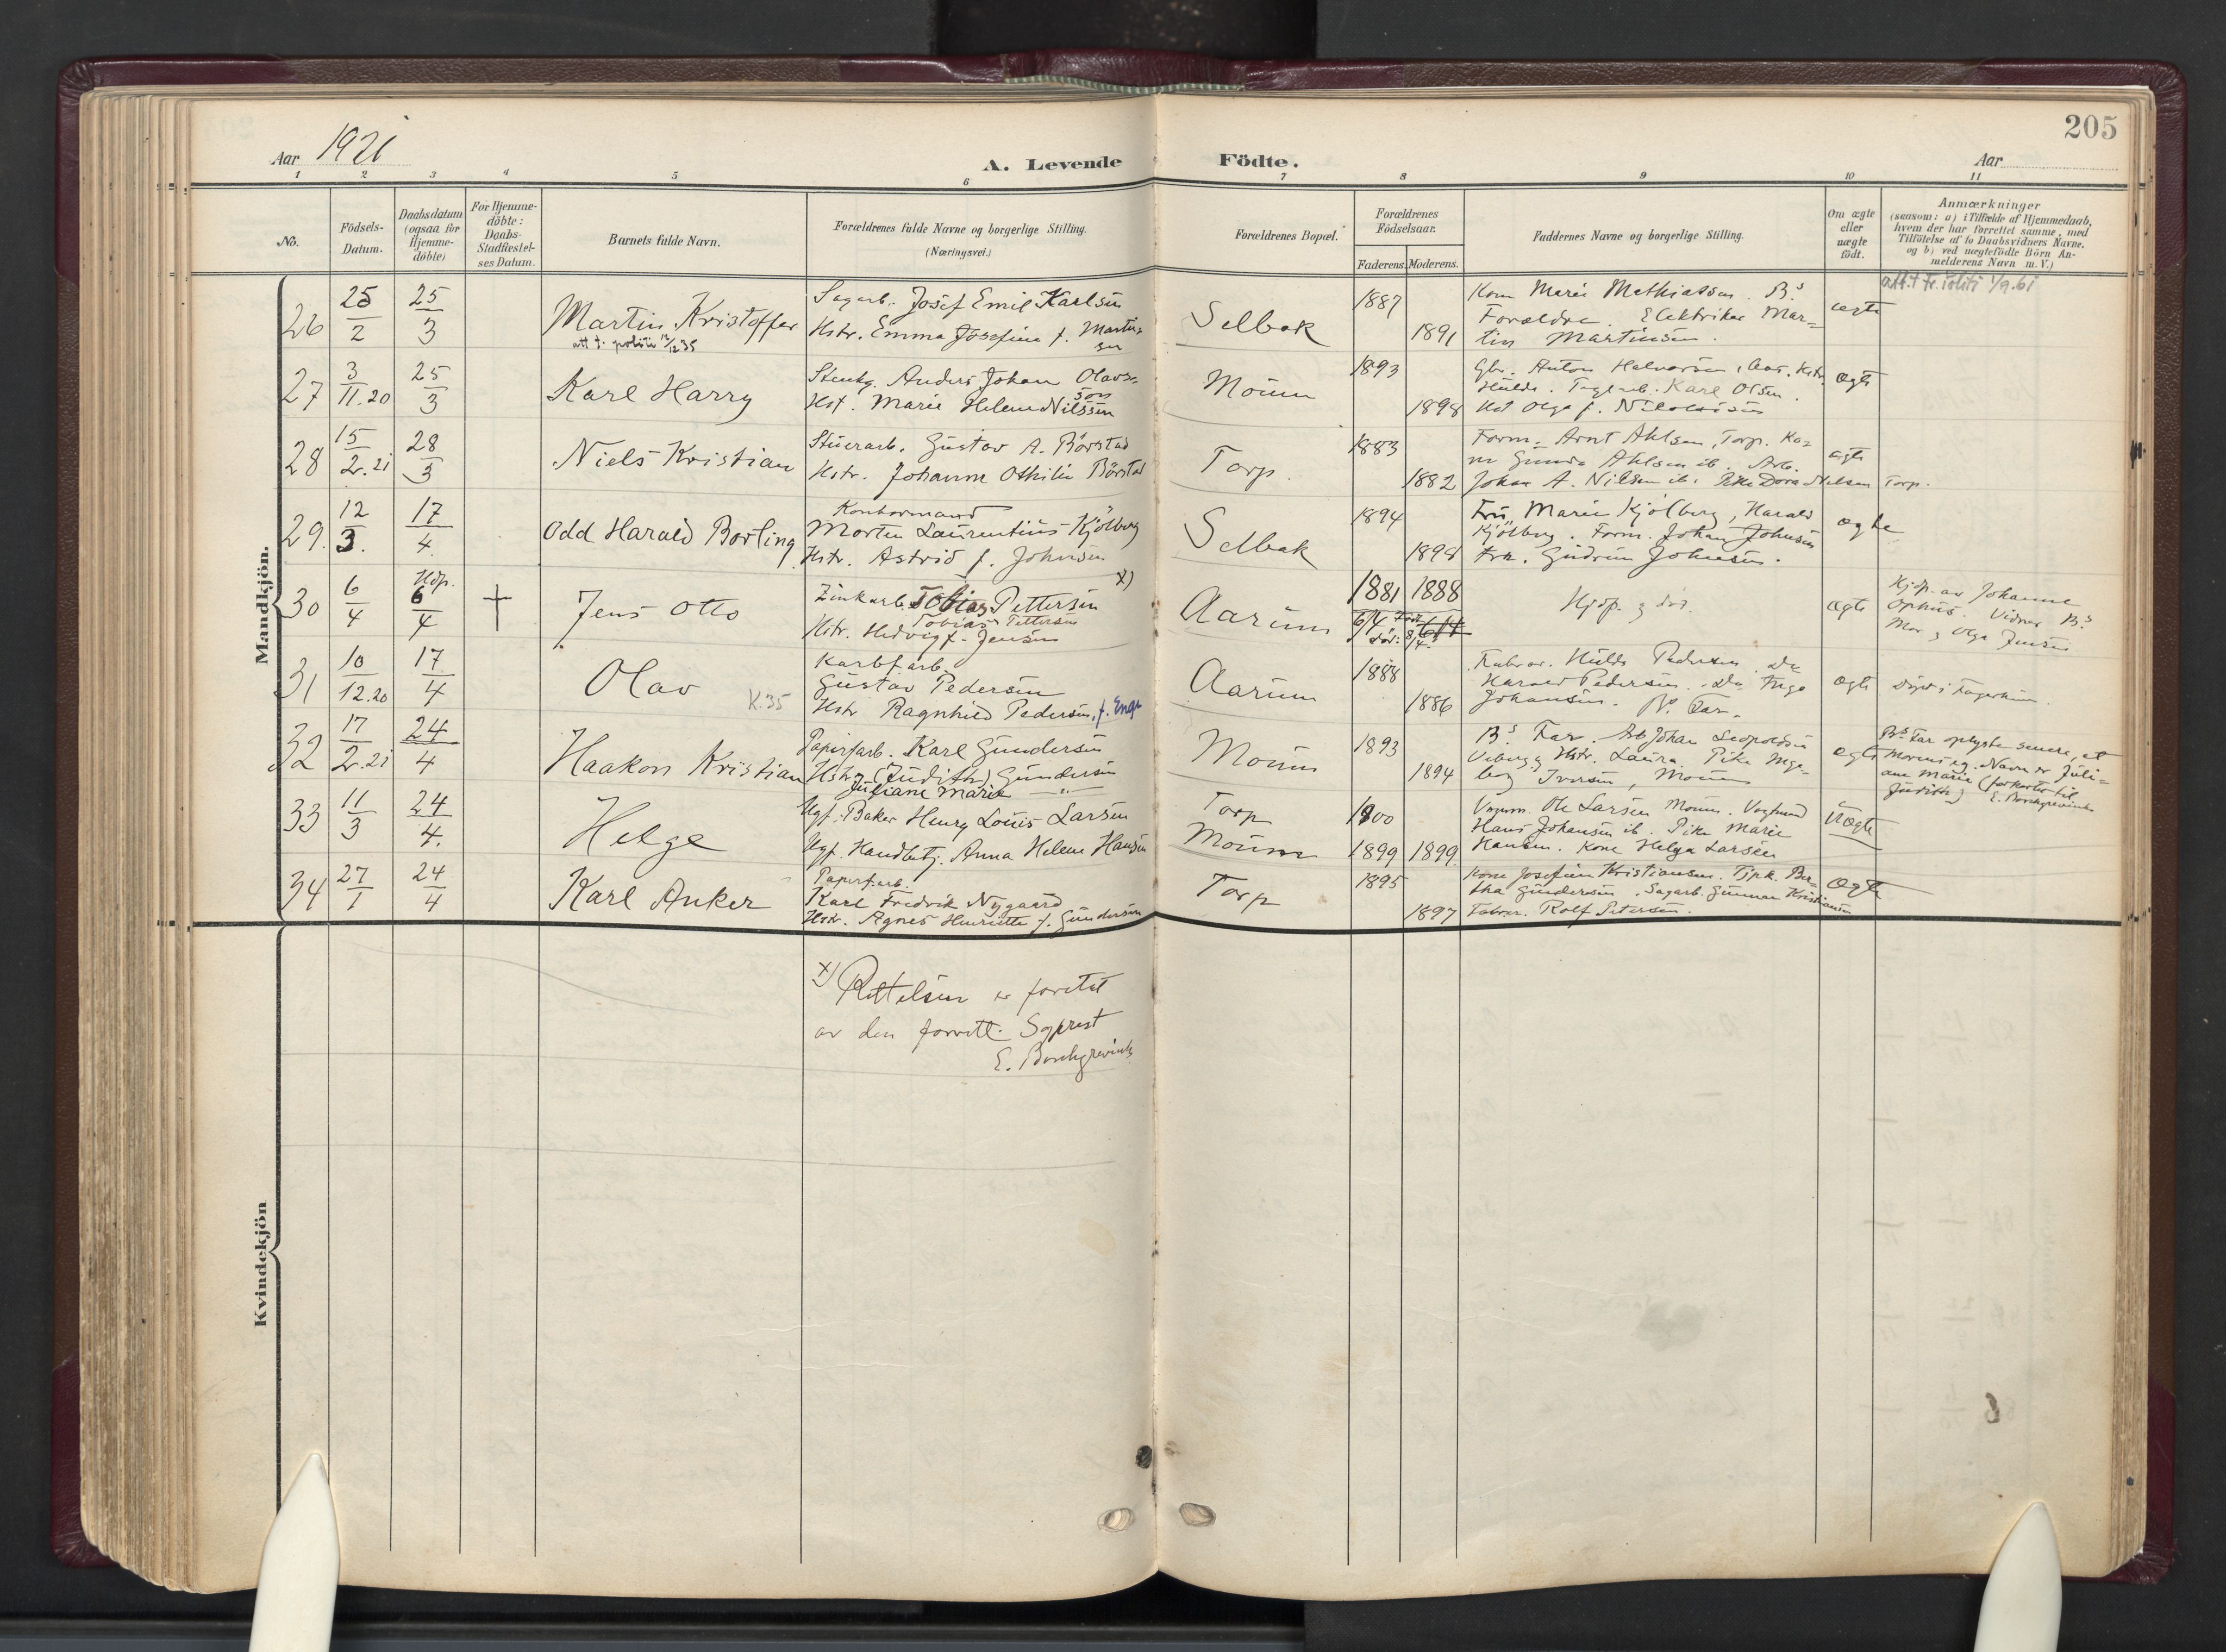 205
Aar 1921
A. Levende Födte.
Aar
1 2 3 4 5 6 7 8 9 10 11
No.
Födsels-
Datum.
Daabsdatum
(ogsaa for
Hjemme-
döbte)
For Hjemme-
döbte:
Daabs-
Stadfæstel-
ses Datum.
Barnets fulde Navn.
Forældrenes fulde Navne og borgerlige Stilling.
(Næringsvei.)
Forældrenes Bopæl.
Forældrenes
Födselsaar.
Faderens. Moderens.
Faddernes Navne og borgerlige Stilling.
Om ægte
eller
uægte
födt.
Anmærkninger
(saasom: a) i Tilfælde af Hjemmedaab,
hvem der har forrettet samme, med
Tilföielse af to Daabsvidners Navne,
og b) ved uægtefödte Börn An-
melderens Navn m. V.)
Mandkjön.
26 25/2 25/3 Martin Kristoffer
att t. politi 12/12 35
Sagarb. Josef Emil Karlsen
Hstr. Emma Josefine f. Martin-
sen
Selbak
1887
1891
Kone Marie Mathiassen. B.s
Forældre. Elektriker Mar-
tin Martinsen.
ægte
att. t. politi 1/9.61
27 3/11.20 25/3 Karl Harry
Stenhg. Anders Johan Olavs-
son
Hst. Marie Helene Nilssen
Moum
1893
1898
Gbr. Anton Halvorsen, Aas. Hstr.
Hulda. Teglarb. Karl Olsen.
Hst Olga f. Nikolaisen
ægte
28 15/2.21 28/3 Niels Kristian
Stuerarb. Gustav A. Börstad
Hstr. Johanne Othilie Börstad
Torp.
1883
1882
Form. Arnt Ahlsen, Torp. Ko-
ne Gunda Ahlsen ib. Arb.
Johan A. Nilsen ib. Pike Dora Nilsen Torp.
ægte
29. 12/3. 17/4. Odd Harald Borling
Kontormand
Morten Laurentius Kjölberg
Hstr. Astrid f. Johnsen
Selbak
1894
1898
Fru Marie Kjölberg, Harald
Kjölberg. Form. Johan Johnsen
Frk. Gudrun Johnsen.
ægte
30 6/4 Hdp. 6/4 † Jens Otto
Zinkarb. Tobias Pettersen x)
Tobias Pettersen
Hstr. Hedvig f. Jensen
Aarum
1881 1888
6/4 Födt 6/4
död: 8/4.
Hjdp. og död.
ægte
Hjdp. av Johanne
Ophus. Vidner B.s
Mor og Olga Jensen
31 10/12.20 17/4 Olav K.35
Karbfarb.
Gustav Pedersen
Hstr Ragnhild Pedersen, f. Engh
Aarum
1888
1886
Fabrar. Hulda Pedersen. Do
Harald Pedersen. Do Inga
Johansen. B.s Far.
ægte
Döpt i Fagerheim.
32 17/2.21 24/4 Haakon Kristian
Papirfarb. Karl Gundersen
Hstr. (Judith) Gundersen
Juliane Marie —"—
Moum
1893
1894
B.s Far. Arb Johan Leopoldsen
Viberg og Hstr. Laura. Pike Inge-
borg Iversen, Moum
ægte
B.s Far oplyste senere, at
Morens eg. Navn er Juli-
ane Marie (forkortet til
Judith) E. Borchgrevink
33 11/3 24/4. Helge
Ugf. Baker Henry Louis Larsen
Ugf. Handbetj. Anna Helene Hansen
Torp
Moum
1900
1899 1899.
Vognm. Ole Larsen Moum. Vogmand
Hans Johansen ib. Pike Marie
Hansen. Kone Helga Larsen
Uægte
34 27/1 24/4 Karl Anker
Papirfarb.
Karl Fredrik Nygaard
Hstr. Agnes Henriette f. Gundersen
Torp
1895
1897
Kone Josefine Kristiansen. Tjpk. Ber-
tha Gundersen. Sagarb. Gunnar Kristiansen
Fabrar. Rolf Petersen.
Ægte
Kvindekjön
x) Rettelsen er foretat
av den forrett. Sogprest
E. Borchgrevink